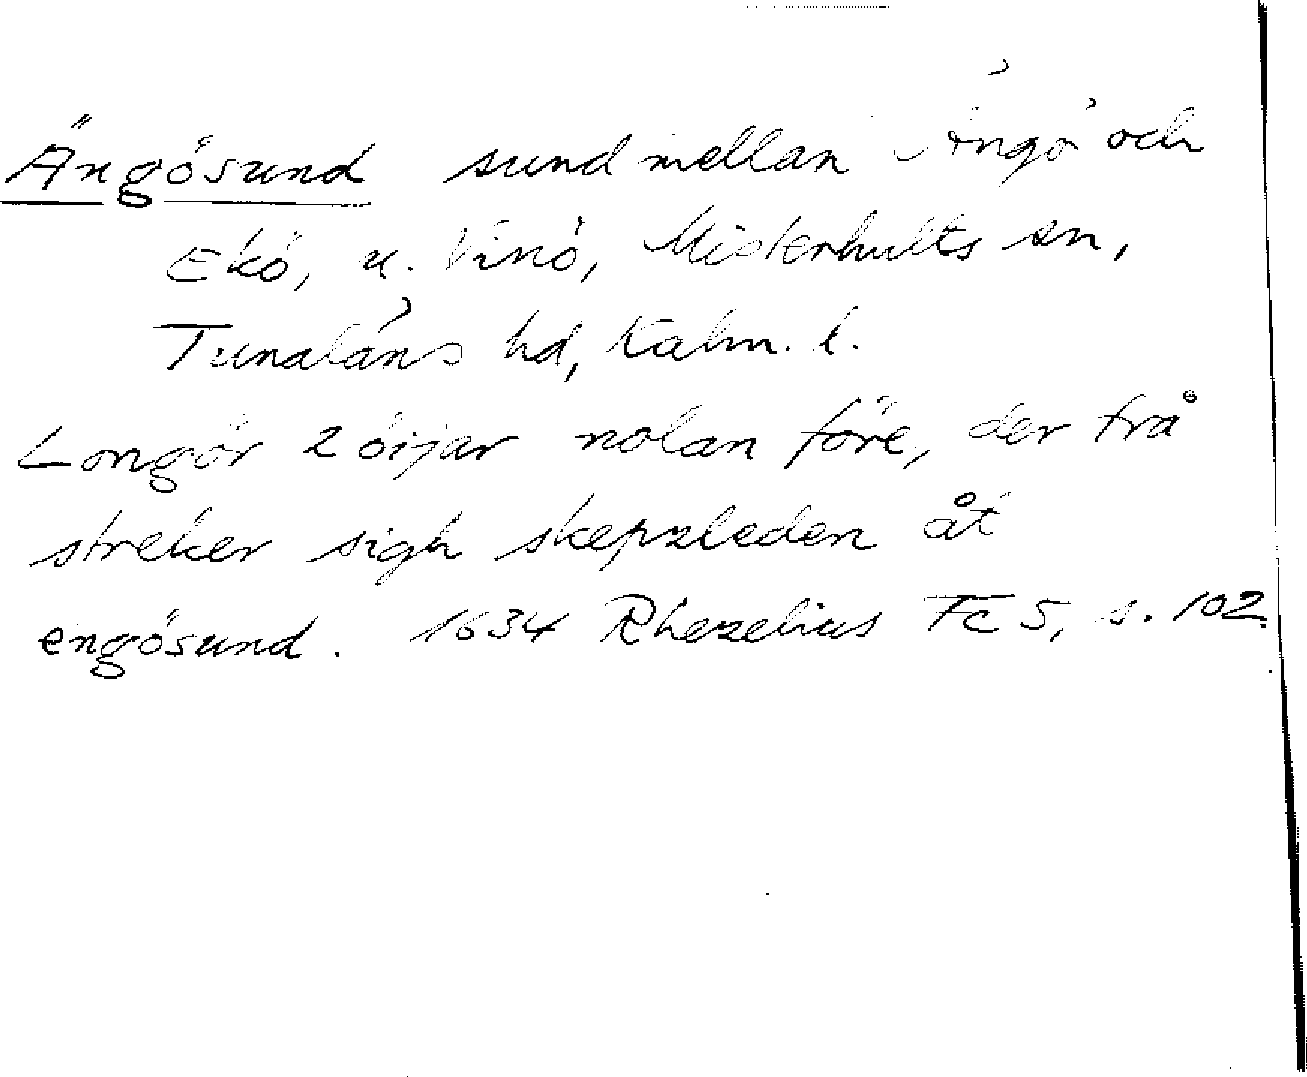 Ängösund sund mellan Ängö och
Ekö, u. Vinö, Misterhults sn,
Tunaläns hd, Kalm. l.
Longör 2 öijar nolan före, der frå
streker sigh skepzleden åt
engösund. 1634 Rhezelius Fc 5, s. 102.